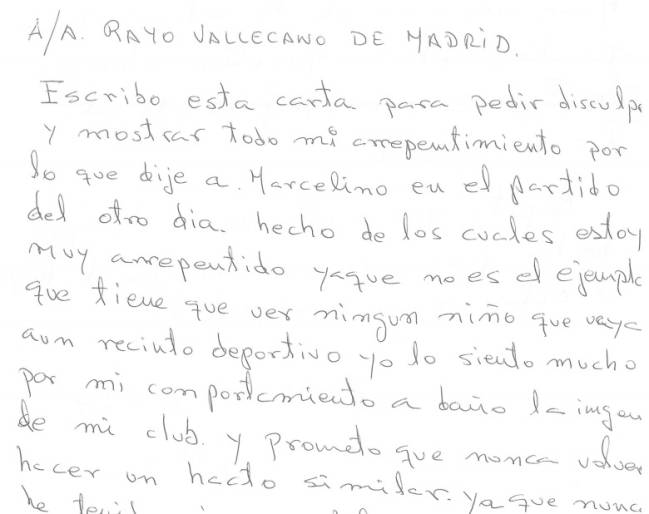 A/A. RAYO VALLECANO DE MADRID.
Escribo esta carta para pedir disculpa
y mostrar todo mi arrepentimiento por
lo que dije a Marcelino en el partido
del otro dia. hecho de los cuales estoy
muy arrepentido yaque no es el ejemplo
que tiene que ver ningun niño que vaya
aun recinto deportivo yo lo siento mucho
por mi comportamiento a daño la imgen
de mi club. y prometo que nunca volver
hacer un hacto similar. ya que nunca
he